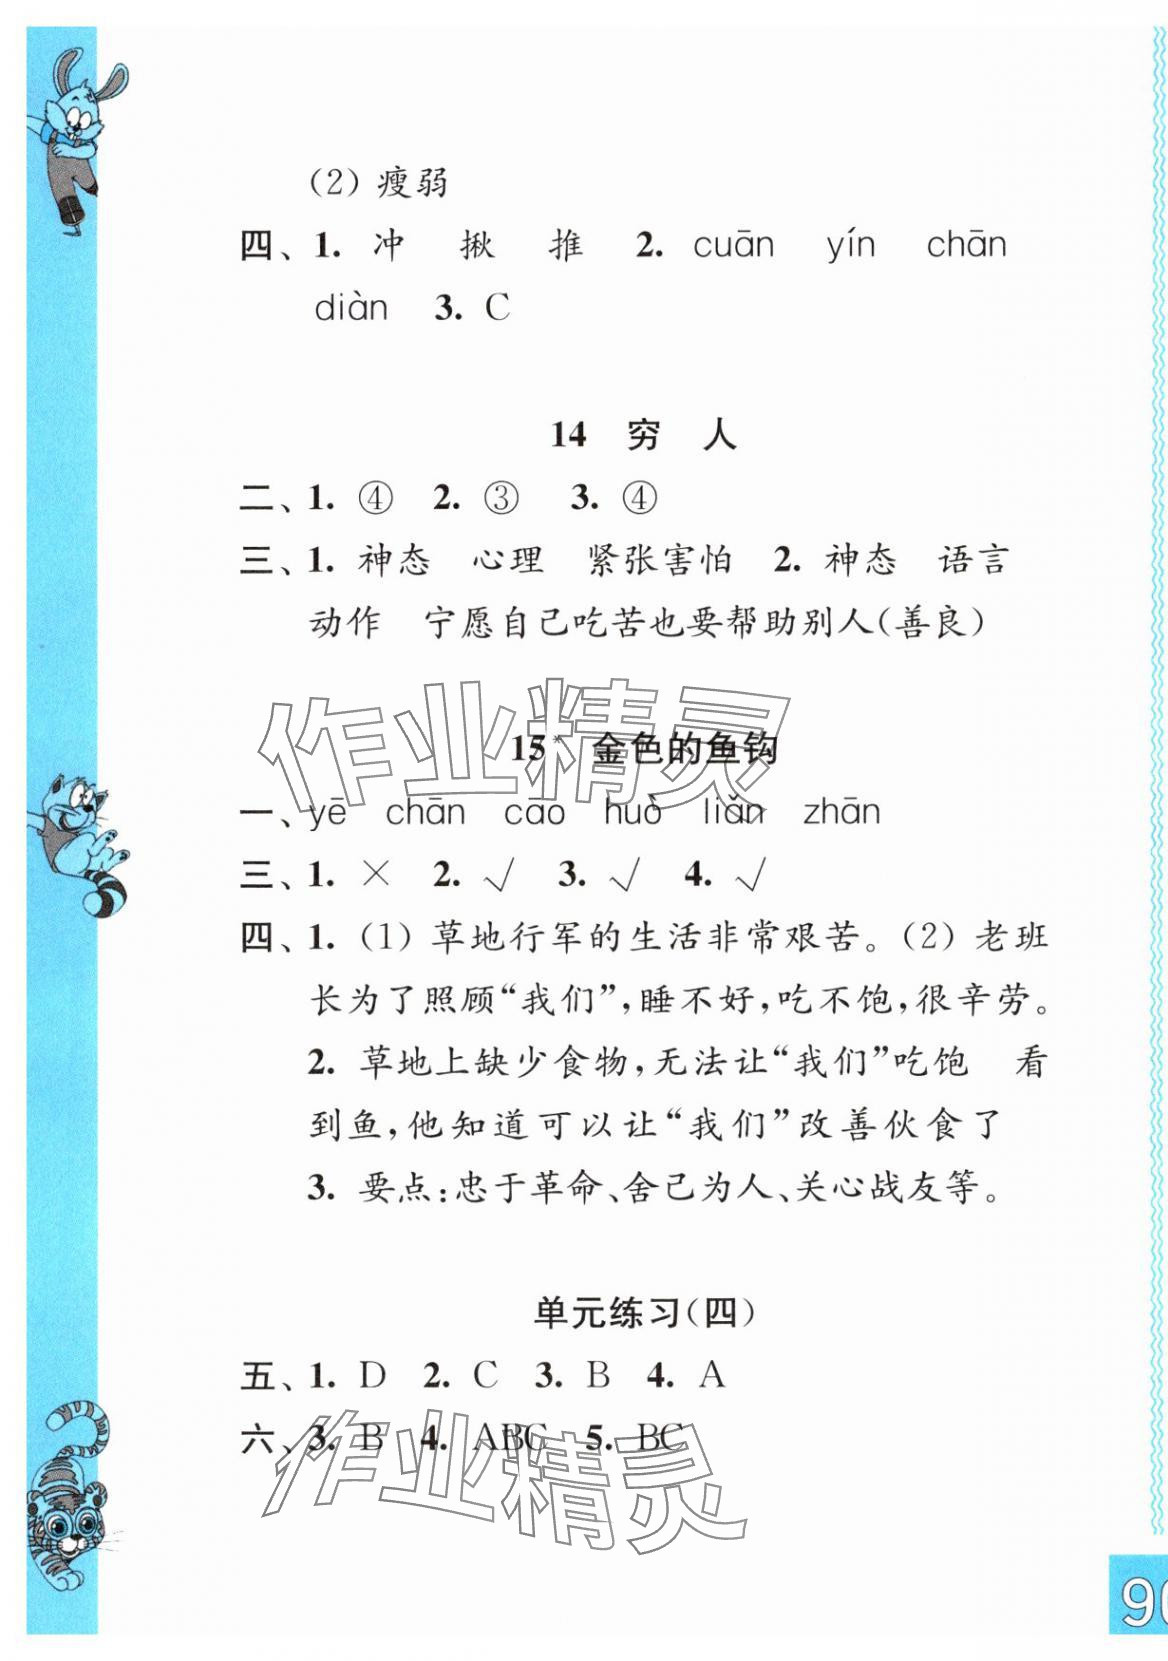 (2) 瘦弱
四、1. 冲 揪 推 2. cuān yín chān
diàn 3. C
14 穷 人
二、1. ④ 2. ③ 3. ④
三、1. 神态 心理 紧张害怕 2. 神态 语言
动作 宁愿自己吃苦也要帮助别人(善良)
作业精灵
15* 金色的鱼钩
一、yē chān cāo huò liǎn zhān
三、1. × 2. √ 3. √ 4. √
四、1. (1) 草地行军的生活非常艰苦。(2) 老班
长为了照顾“我们”,睡不好,吃不饱,很辛劳。
2. 草地上缺少食物,无法让“我们”吃饱 看
到鱼,他知道可以让“我们”改善伙食了
3. 要点:忠于革命、舍己为人、关心战友等。
单元练习(四)
五、1. D 2. C 3. B 4. A
六、3. B 4. ABC 5. BC
作业精灵